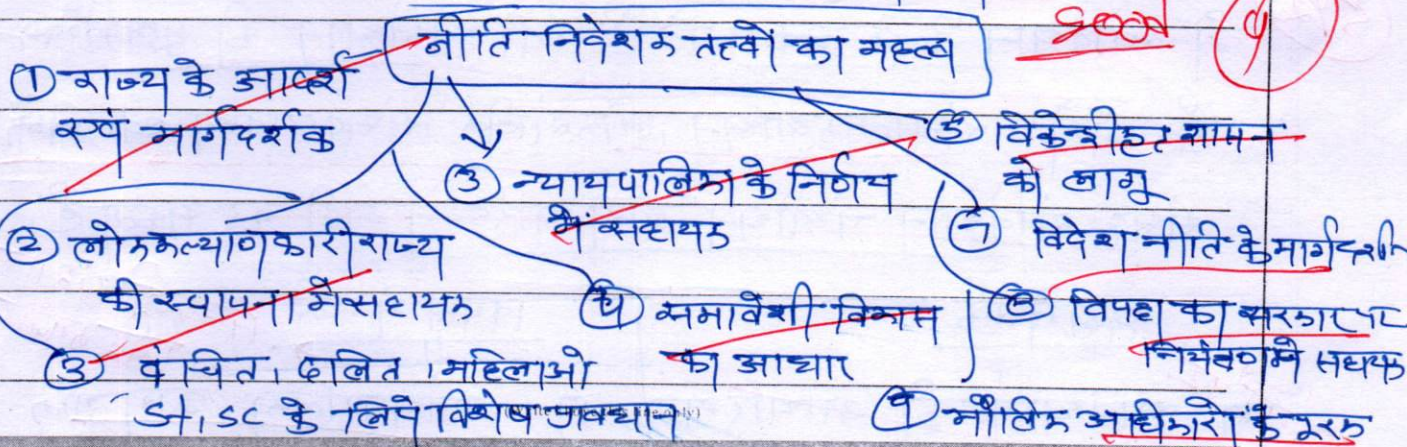 नीति निदेशक तत्वों का महत्व
good
4
① राज्य के आदर्श
एवं मार्गदर्शक
② लोककल्याणकारी राज्य
की स्थापना में सहायक
③ वंचित, दलित, महिलाओं
ST, SC के लिये विशेष प्रावधान
③ न्यायपालिका के निर्णय
में सहायक
④ समावेशी विकास
का आधार
⑤ विकेन्द्रीकृत शासन
को लागू
⑦ विदेश नीति के मार्गदर्शक
⑧ विपक्ष का सरकार पर
नियंत्रण में सहायक
⑨ मौलिक अधिकारों के पूरक